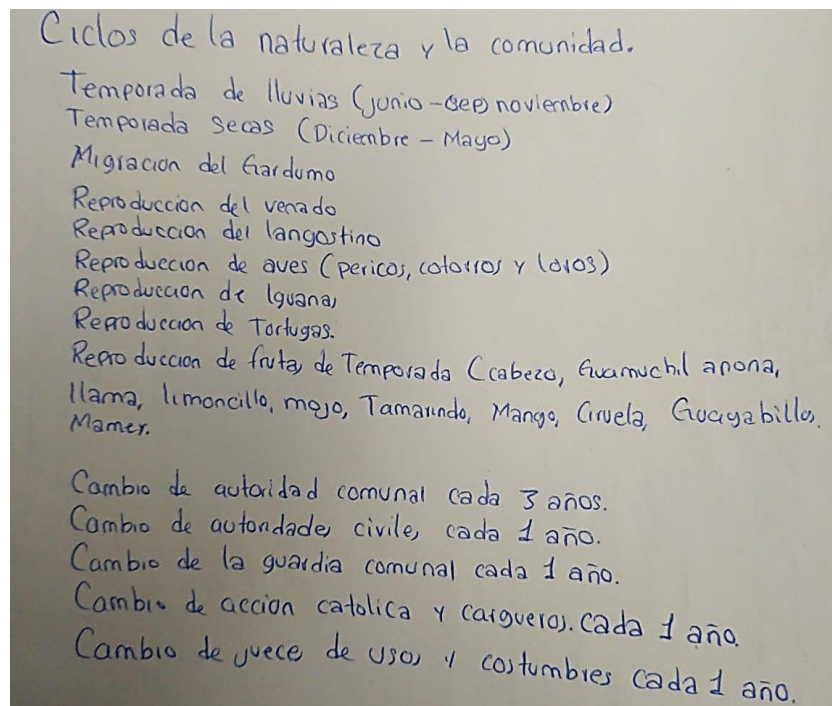 Ciclos de la naturaleza y la comunidad.
Temporada de lluvias (junio - Sep) noviembre)
Temporada Secas (Diciembre - Mayo)
Migracion del Gardumo
Reproduccion del venado
Reproduccion del langostino
Reproduccion de aves (pericos, cotorros y loros)
Reproduccion de Iguanas
Reproduccion de Tortugas.
Reproduccion de frutas de Temporada (cabezo, Guamuchil anona,
llama, limoncillo, mojo, Tamarindo, Mango, Ciruela, Guayabillo,
Mamer.
Cambio de autoridad comunal cada 3 años.
Cambio de autoridades civiles cada 1 año.
Cambio de la guardia comunal cada 1 año.
Cambio de accion catolica y cargueros. cada 1 año.
Cambio de jueces de usos y costumbres cada 1 año.